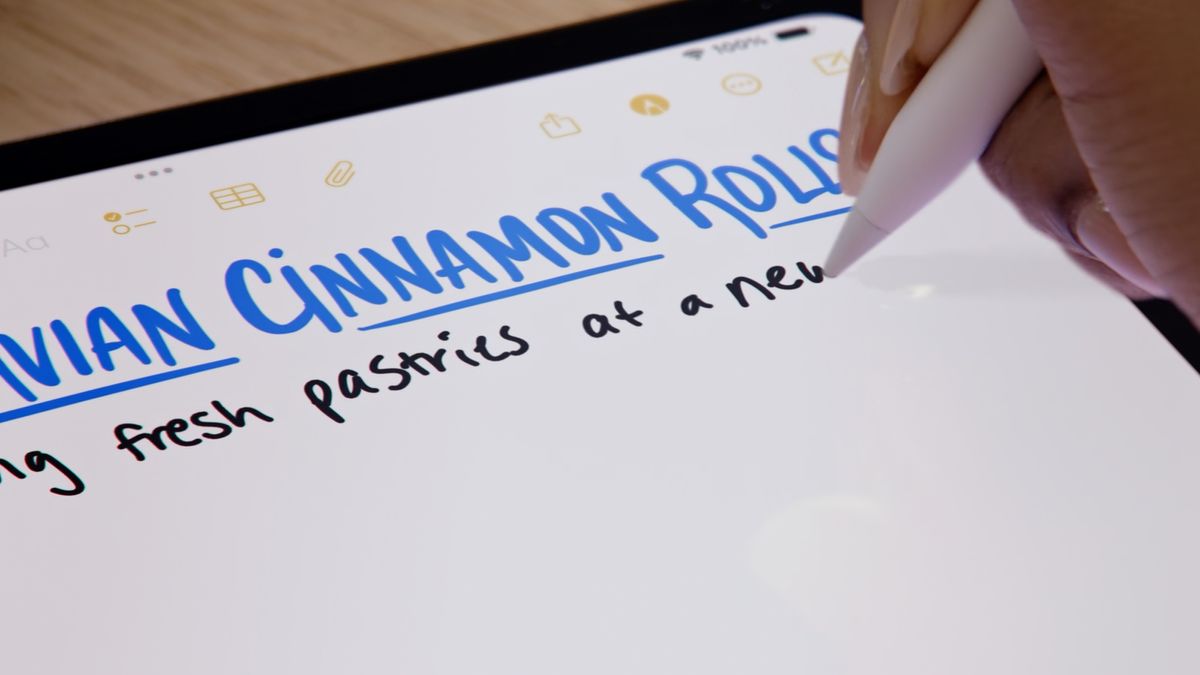 100%
Aa
VIAN CiNNAMON ROLLS
fresh pastries at a new